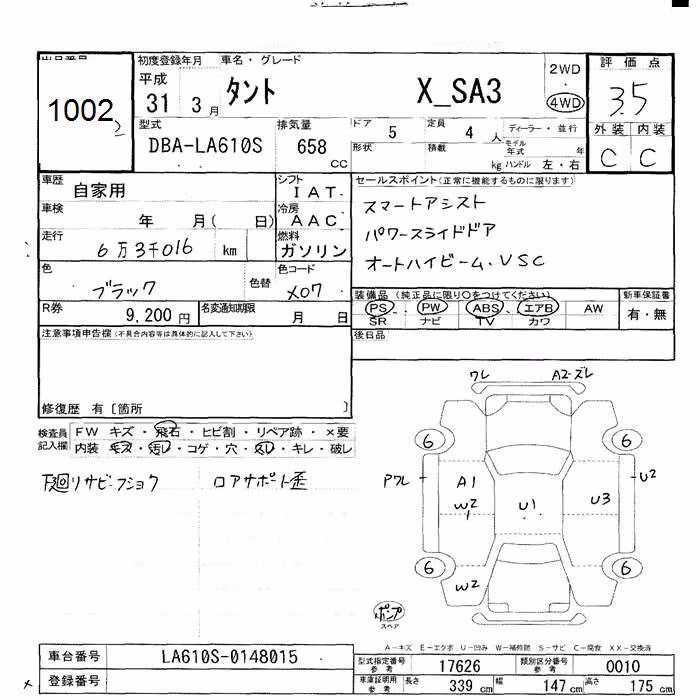 出品番号 初度登録年月 車名・グレード 評価点
1002 平成 31 3月 タント X_SA3 2WD・4WD 3.5
外装 内装
C C
型式 DBA-LA610S 排気量 658 CC ドア 5 定員 4人 ディーラー・並行
形状 積載 kg モデル年式 年 ハンドル 左・右
車歴 自家用 シフト IAT セールスポイント(正常に機能するものに限ります)
車検 年 月( 日) 冷房 AAC スマートアシスト
走行 6万3千016 km 燃料 ガソリン パワースライドドア
オートハイビーム、VSC
色 ブラック 色替 色コード X07
装備品 (純正品に限り○をつけてください) 新車保証書
PS PW ABS エアB AW 有・無
SR ナビ TV カワ
R券 9,200円 名変通知期限 月 日
後日品
注意事項申告欄(不具合内容等は具体的に記入して下さい)
修復歴 有〔箇所 〕
検査員記入欄 FW キズ・飛石・ヒビ割・リペア跡・×要
内装 キズ・汚レ・コゲ・穴・スレ・キレ・破レ
下廻リサビ・フショク ロアサポート歪
ワレ A2-ズレ
6 6
Pワレ A1 U2
W2 U1 U3
1
6 6
W2
ポンプ
スペア
A-キズ E-エクボ U-凹み W-補修跡 S-サビ C-腐食 XX-交換済
車台番号 LA610S-0148015 型式指定番号 参考 17626 類別区分番号 参考 0010
登録番号 車庫証明用 参考 長さ 339cm 幅 147cm 高さ 175cm